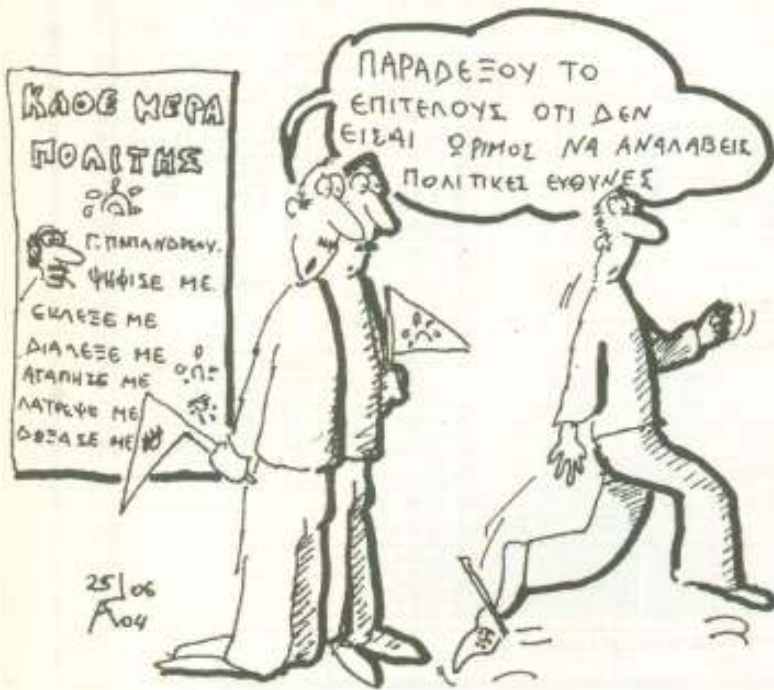 ΚΑΘΕ ΜΕΡΑ
ΠΟΛΙΤΗΣ
Γ. ΠΑΠΑΝΔΡΕΟΥ.
ΨΗΦΙΣΕ ΜΕ
ΕΚΛΕΞΕ ΜΕ
ΔΙΑΛΕΞΕ ΜΕ
ΑΓΑΠΗΣΕ ΜΕ
ΛΑΤΡΕΨΕ ΜΕ
ΔΟΞΑΣΕ ΜΕ
ΠΑΡΑΔΕΞΟΥ ΤΟ
ΕΠΙΤΕΛΟΥΣ ΟΤΙ ΔΕΝ
ΕΙΣΑΙ ΩΡΙΜΟΣ ΝΑ ΑΝΑΛΑΒΕΙΣ
ΠΟΛΙΤΙΚΕΣ ΕΥΘΥΝΕΣ
25/06
04